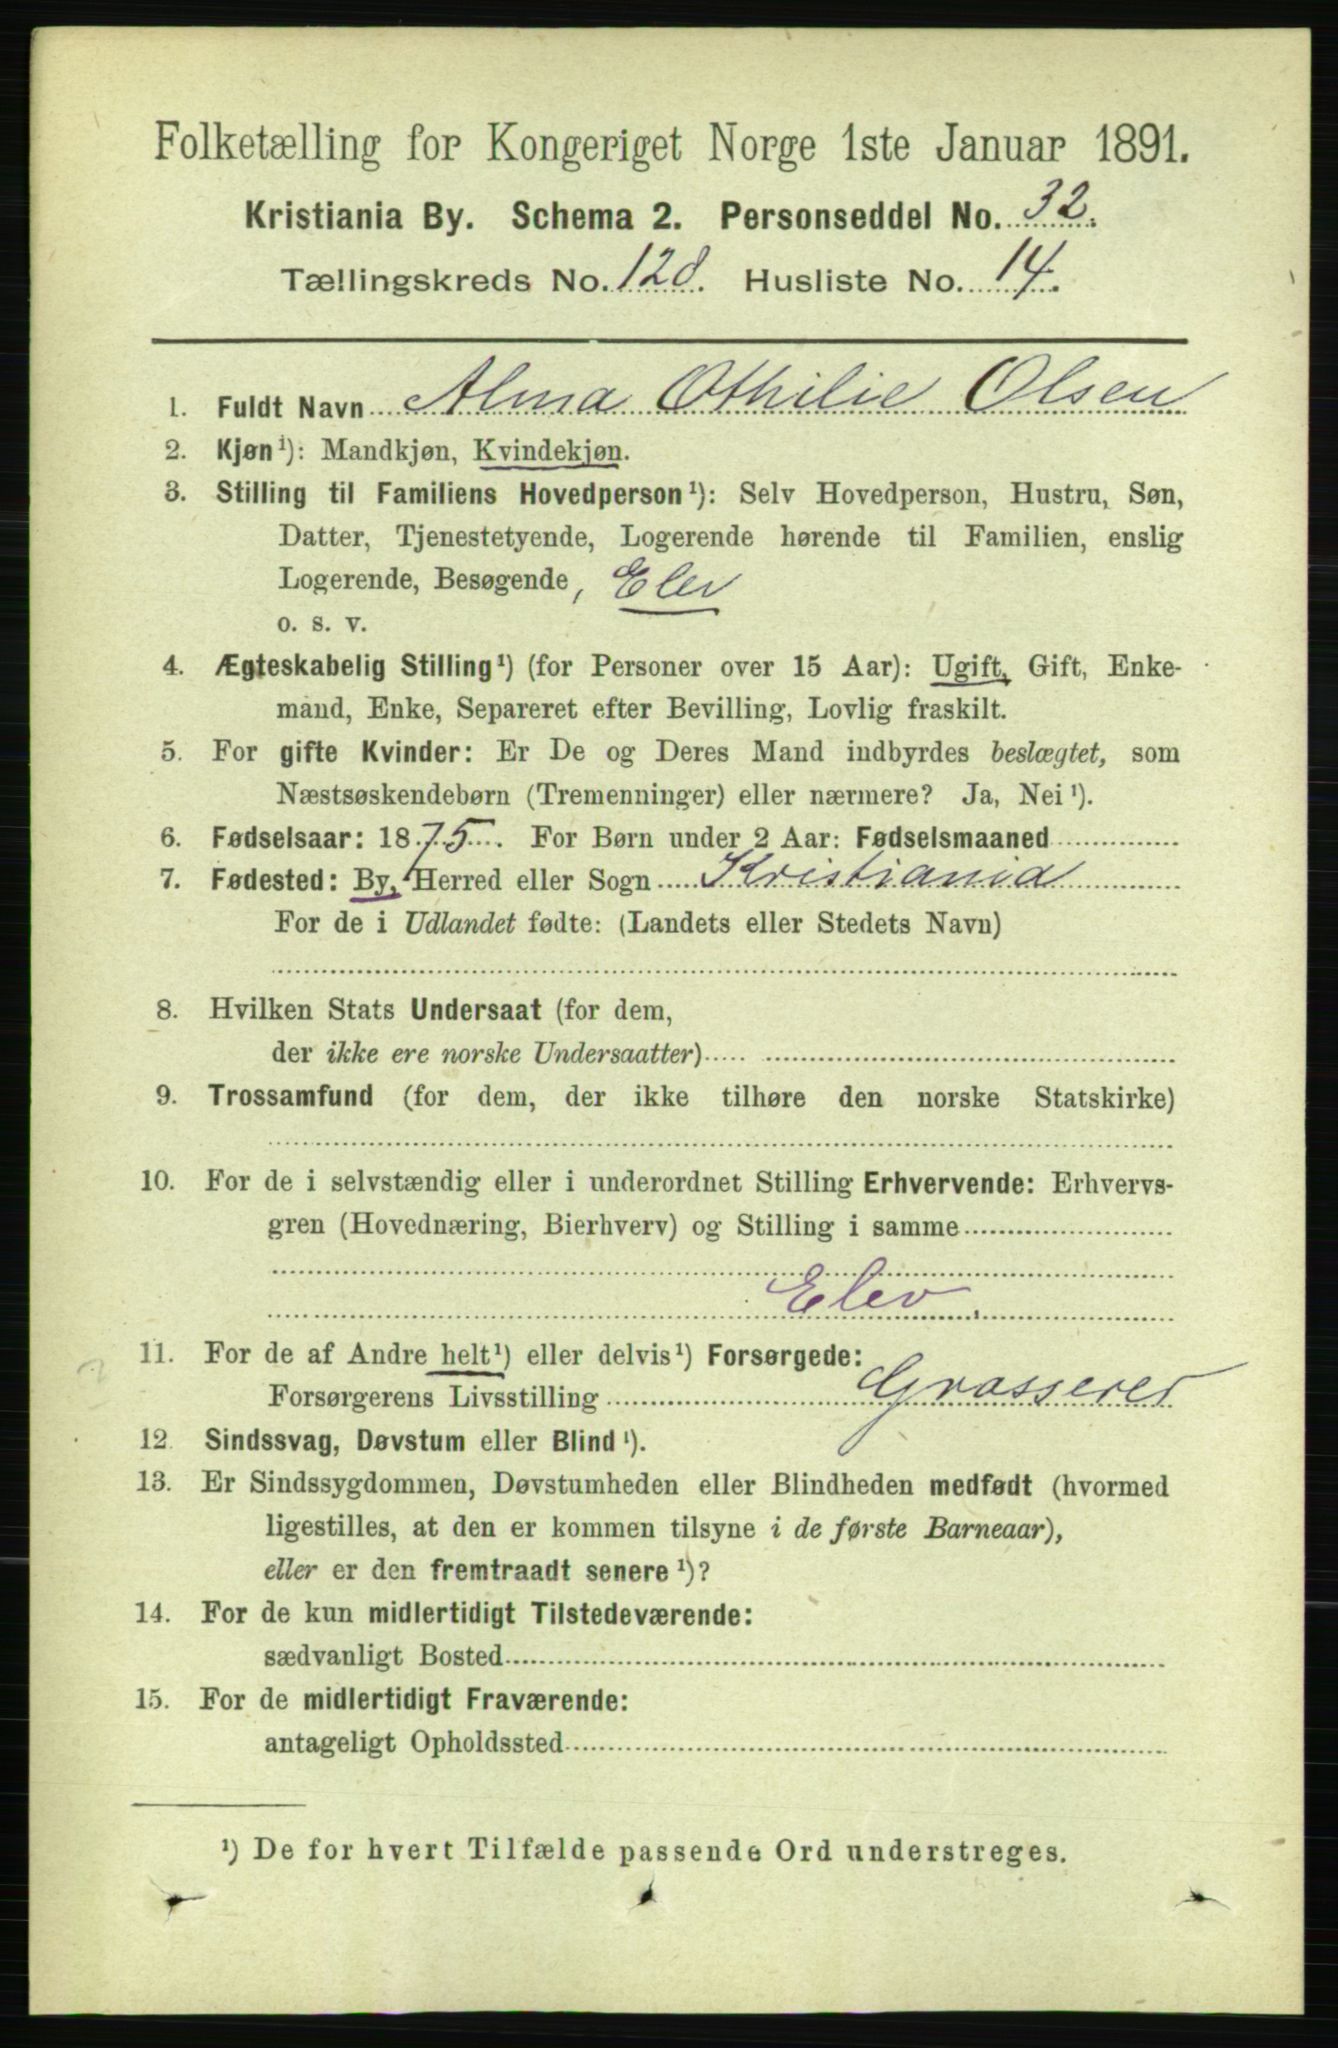 Folketælling for Kongeriget Norge 1ste Januar 1891.
Kristiania By. Schema 2. Personseddel No. 32.
Tællingskreds No. 128. Husliste No. 14.
1. Fuldt Navn Alma Othilie Olsen
2. Kjøn¹): Mandkjøn, Kvindekjøn.
3. Stilling til Familiens Hovedperson¹): Selv Hovedperson, Hustru, Søn,
Datter, Tjenestetyende, Logerende hørende til Familien, enslig
Logerende, Besøgende, Elev
o. s. v.
4. Ægteskabelig Stilling¹) (for Personer over 15 Aar): Ugift, Gift, Enke-
mand, Enke, Separeret efter Bevilling, Lovlig fraskilt.
5. For gifte Kvinder: Er De og Deres Mand indbyrdes beslægtet, som
Næstsøskendebørn (Tremenninger) eller nærmere? Ja, Nei¹).
6. Fødselsaar: 1875. For Børn under 2 Aar: Fødselsmaaned
7. Fødested: By, Herred eller Sogn Kristiania
For de i Udlandet fødte: (Landets eller Stedets Navn)
8. Hvilken Stats Undersaat (for dem,
der ikke ere norske Undersaatter)
9. Trossamfund (for dem, der ikke tilhøre den norske Statskirke)
10. For de i selvstændig eller i underordnet Stilling Erhvervende: Erhvervs-
gren (Hovednæring, Bierhverv) og Stilling i samme
Elev.
11. For de af Andre helt¹) eller delvis¹) Forsørgede:
Forsørgerens Livsstilling Grosserer
12. Sindssvag, Døvstum eller Blind¹).
13. Er Sindssygdommen, Døvstumheden eller Blindheden medfødt (hvormed
ligestilles, at den er kommen tilsyne i de første Barneaar),
eller er den fremtraadt senere¹)?
14. For de kun midlertidigt Tilstedeværende:
sædvanligt Bosted
15. For de midlertidigt Fraværende:
antageligt Opholdssted
¹) De for hvert Tilfælde passende Ord understreges.